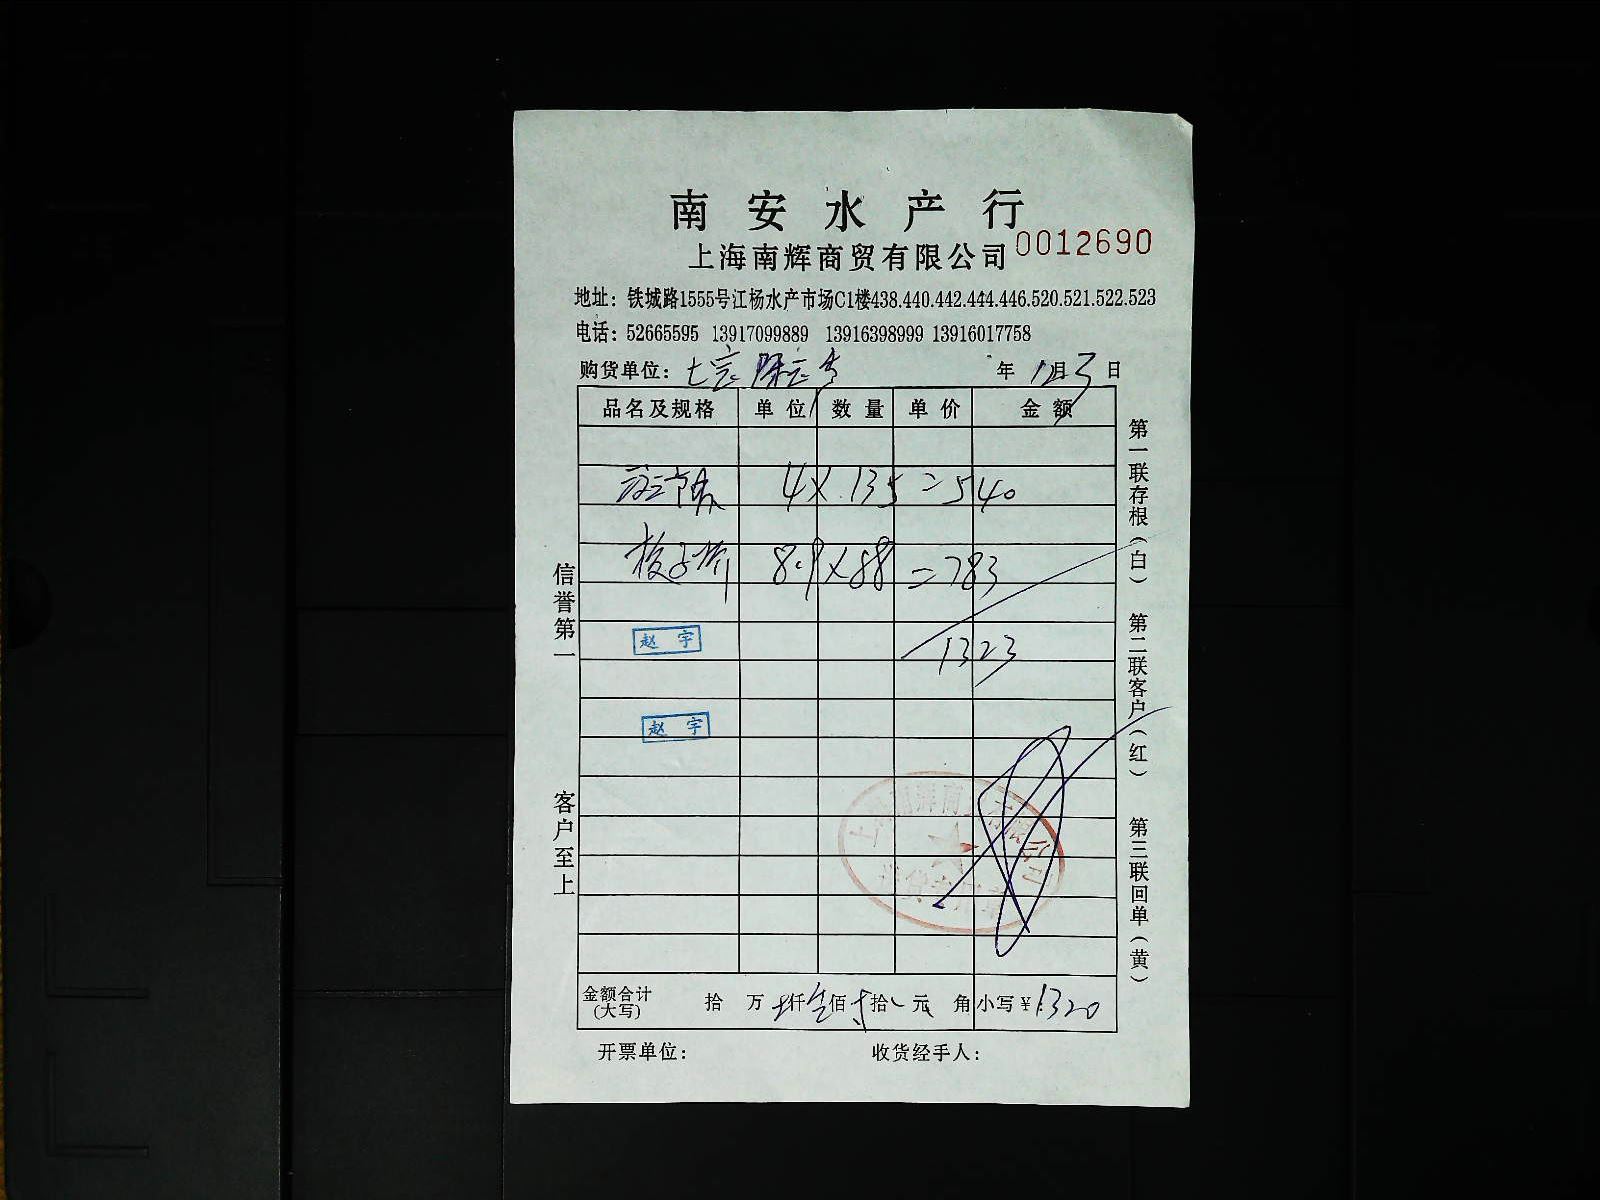 南安水产行
上海南辉商贸有限公司 0012690
地址：铁城路1555号江杨水产市场C1楼438.440.442.444.446.520.521.522.523
电话：52665595 13917099889 13916398999 13916017758
购货单位： 年 12月3日
品名及规格 单位 数量 单价 金额
4×135=540
8.9×88=783
赵宇
1323
赵宇
信誉第一
客户至上
第一联存根（白） 第二联客户（红） 第三联回单（黄）
金额合计（大写） 拾 万 仟 佰 拾 元 角 小写¥1320
开票单位： 收货经手人：